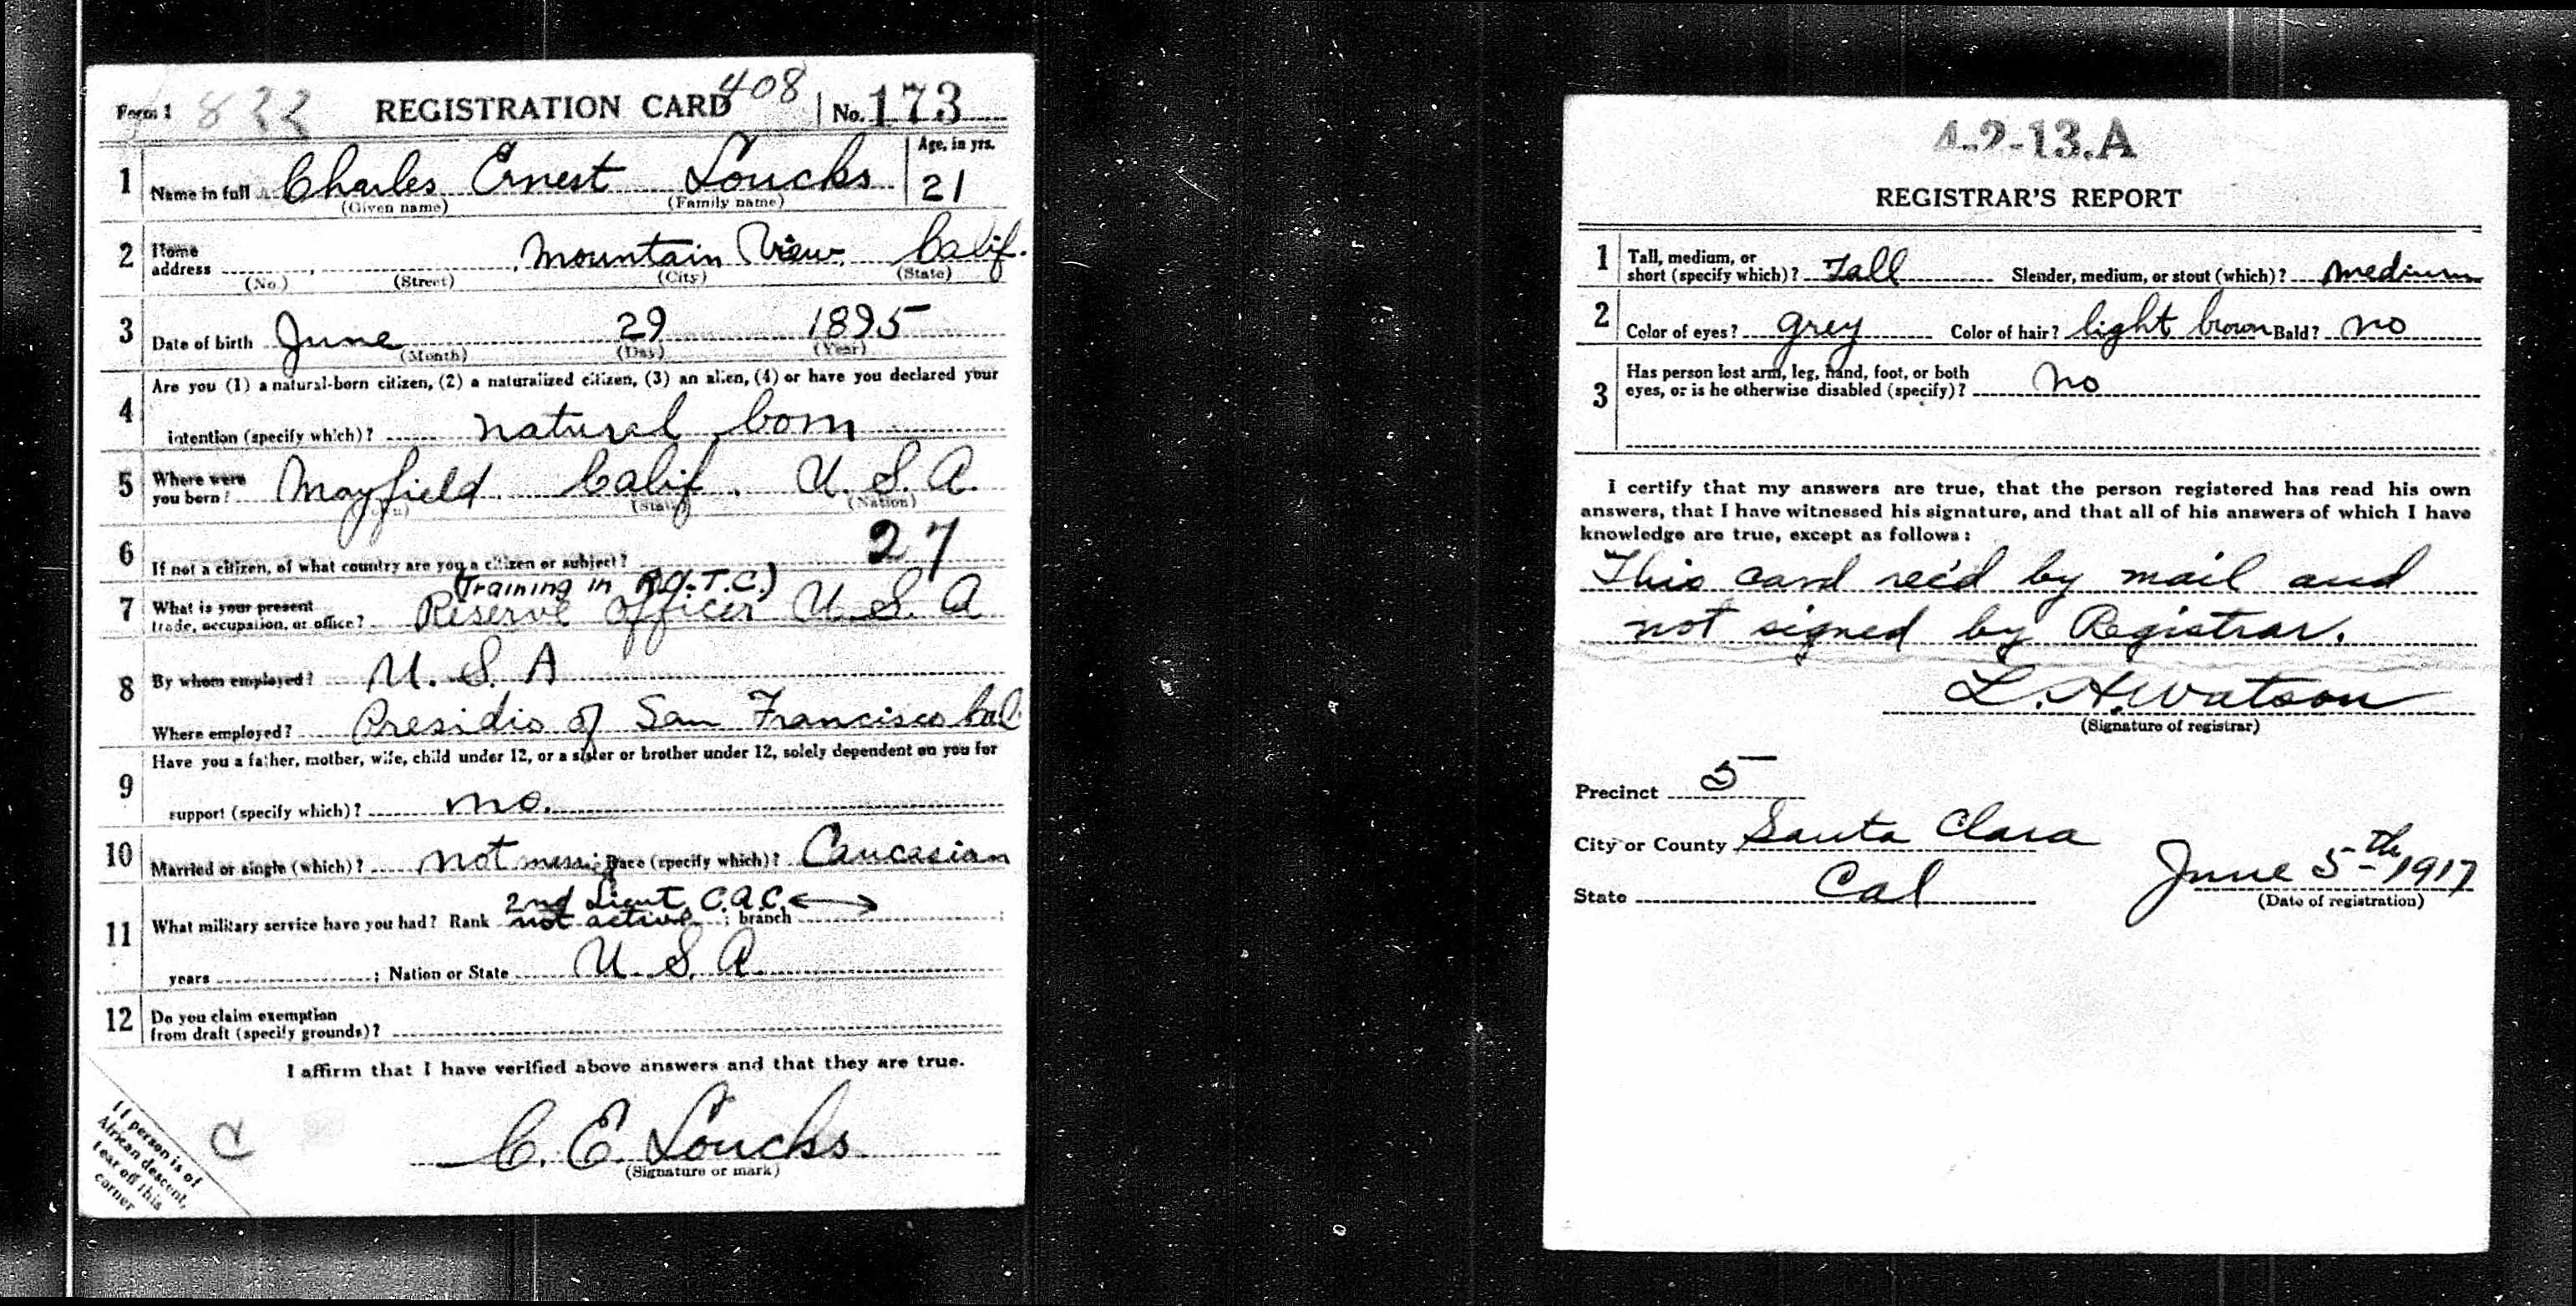 Form 1 822 REGISTRATION CARD 408 No. 173
1 Name in full Charles Ernest Loucks Age, in yrs. 21
(Given name) (Family name)
2 Home address Mountain View Calif.
(No.) (Street) (City) (State)
3 Date of birth June 29 1895
(Month) (Day) (Year)
Are you (1) a natural-born citizen, (2) a naturalized citizen, (3) an alien, (4) or have you declared your
4 intention (specify which)? natural born
5 Where were you born? Mayfield Calif. U. S. A.
(State) (Nation)
27
6 If not a citizen, of what country are you a citizen or subject?
(Training in R.O.T.C.)
7 What is your present trade, occupation, or office? Reserve Officer U. S. A
8 By whom employed? U. S. A
Where employed? Presidio of San Francisco Cal
Have you a father, mother, wife, child under 12, or a sister or brother under 12, solely dependent on you for
9 support (specify which)? no.
10 Married or single (which)? not Race (specify which)? Caucasian
2nd Lieut. C.A.C.
11 What military service have you had? Rank not active ; branch ;
years ; Nation or State U. S. A.
12 Do you claim exemption
from draft (specify grounds)?
I affirm that I have verified above answers and that they are true.
C. E. Loucks
(Signature or mark)
If person is of
African descent,
tear off this
corner
C
4-2-13.A
REGISTRAR'S REPORT
1 Tall, medium, or
short (specify which)? Tall Slender, medium, or stout (which)? medium
2 Color of eyes? grey Color of hair? light brown Bald? no
3 Has person lost arm, leg, hand, foot, or both
eyes, or is he otherwise disabled (specify)? no
I certify that my answers are true, that the person registered has read his own
answers, that I have witnessed his signature, and that all of his answers of which I have
knowledge are true, except as follows:
This card rec'd by mail and
not signed by Registrar.
L. H. Watson
(Signature of registrar)
Precinct 5
City or County Santa Clara
State Cal June 5th 1917
(Date of registration)